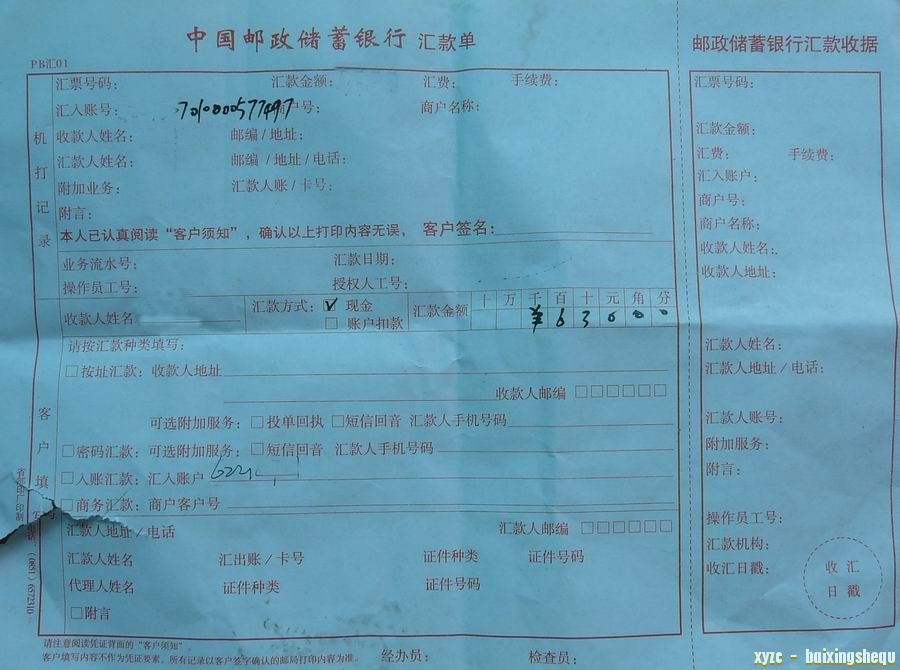 中国邮政储蓄银行 汇款单
邮政储蓄银行汇款收据
PB汇01
机打记录
汇票号码： 汇款金额： 汇费： 手续费：
汇入账号： 商户号： 商户名称：
收款人姓名： 邮编/地址：
汇款人姓名： 邮编/地址/电话：
附加业务： 汇款人账/卡号：
附言：
本人已认真阅读“客户须知”，确认以上打印内容无误， 客户签名：
业务流水号： 汇款日期：
操作员工号： 授权人工号：
客户填写
收款人姓名 汇款方式： ☑ 现金 □ 账户扣款 汇款金额 十 万 千 百 十 元 角 分
¥ 6 3 0 0 0
请按汇款种类填写：
□按址汇款：收款人地址
收款人邮编 □□□□□□
可选附加服务：□投单回执 □短信回音 汇款人手机号码
□密码汇款：可选附加服务：□短信回音 汇款人手机号码
□入账汇款：汇入账户
□商务汇款：商户客户号
汇款人地址/电话 汇款人邮编 □□□□□□
汇款人姓名 汇出账/卡号 证件种类 证件号码
代理人姓名 证件种类 证件号码
□附言
请注意阅读凭证背面的“客户须知”
客户填写内容不作为凭证要素，所有记录以客户签字确认的邮局打印内容为准。
经办员： 检查员：
汇票号码：
汇款金额：
汇费： 手续费：
汇入账户：
商户号：
商户名称：
收款人姓名：
收款人地址：
汇款人姓名：
汇款人地址/电话：
汇款人账号：
附加服务：
附言：
操作员工号：
汇款机构：
收汇日戳：
收汇
日戳
xyzc - baixingshequ